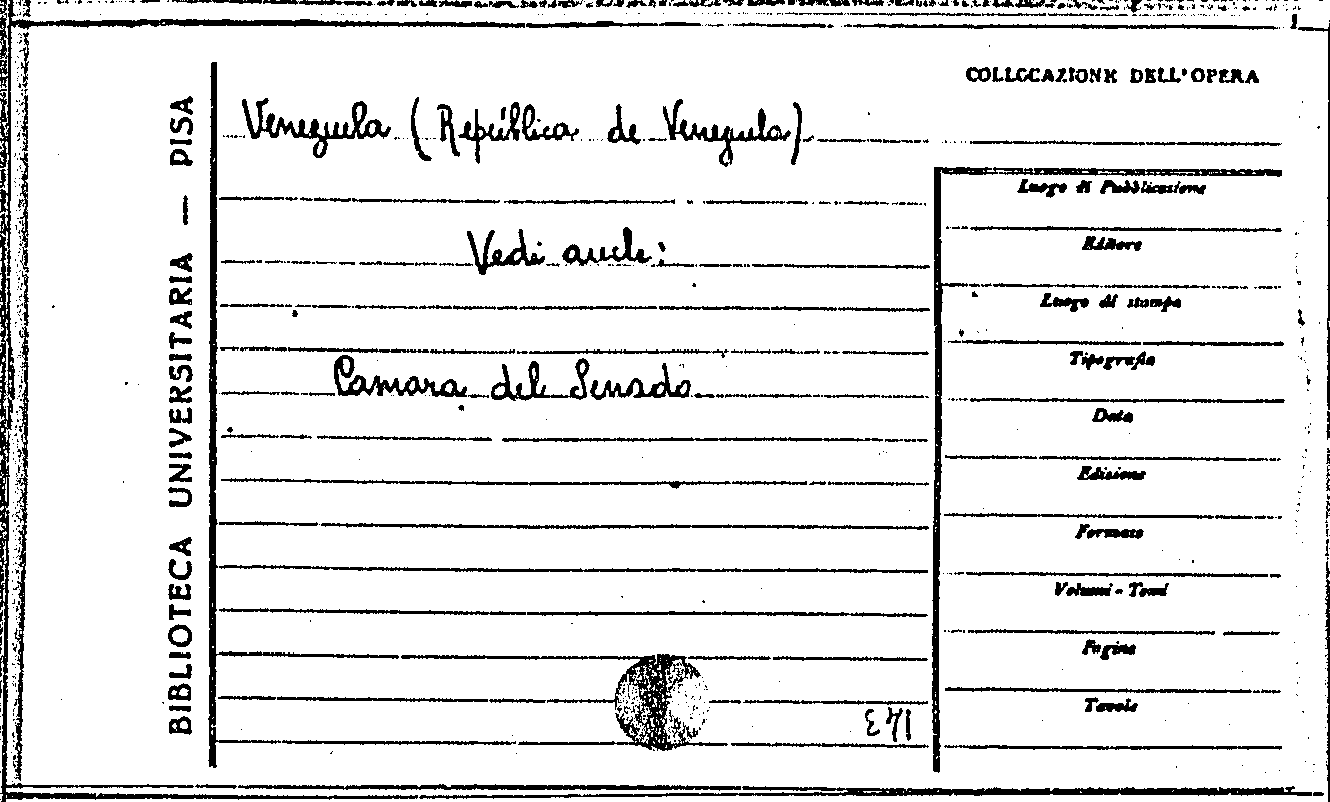 COLLOCAZIONE DELL'OPERA
BIBLIOTECA UNIVERSITARIA — PISA
Venezuela (República de Venezuela)
Vedi anche:
Camara del Senado
Luogo di Pubblicazione
Editore
Luogo di stampa
Tipografia
Data
Edizione
Formato
Volumi - Tomi
Pagine
Tavole